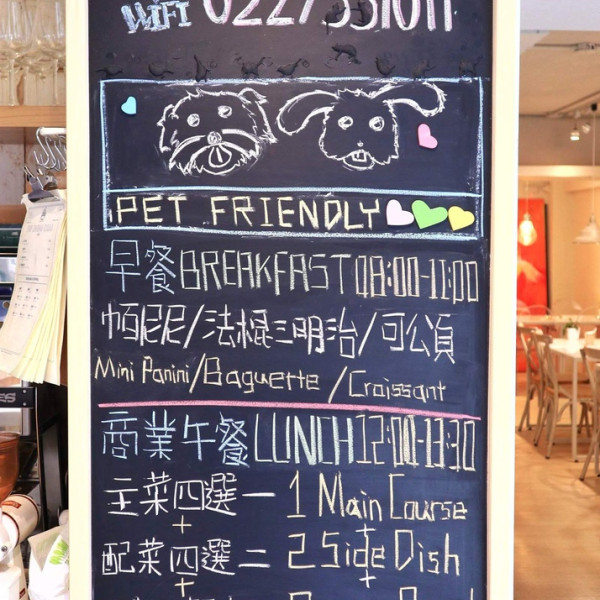 WIFI 0227531011
PET FRIENDLY
早餐BREAKFAST 08:00-11:00
帕尼尼/法棍三明治/可頌
Mini Panini/Baguette/Croissant
商業午餐LUNCH12:00-13:30
主菜四選一 1 Main Course
+ +
配菜四選二 2 Side Dish
+ +